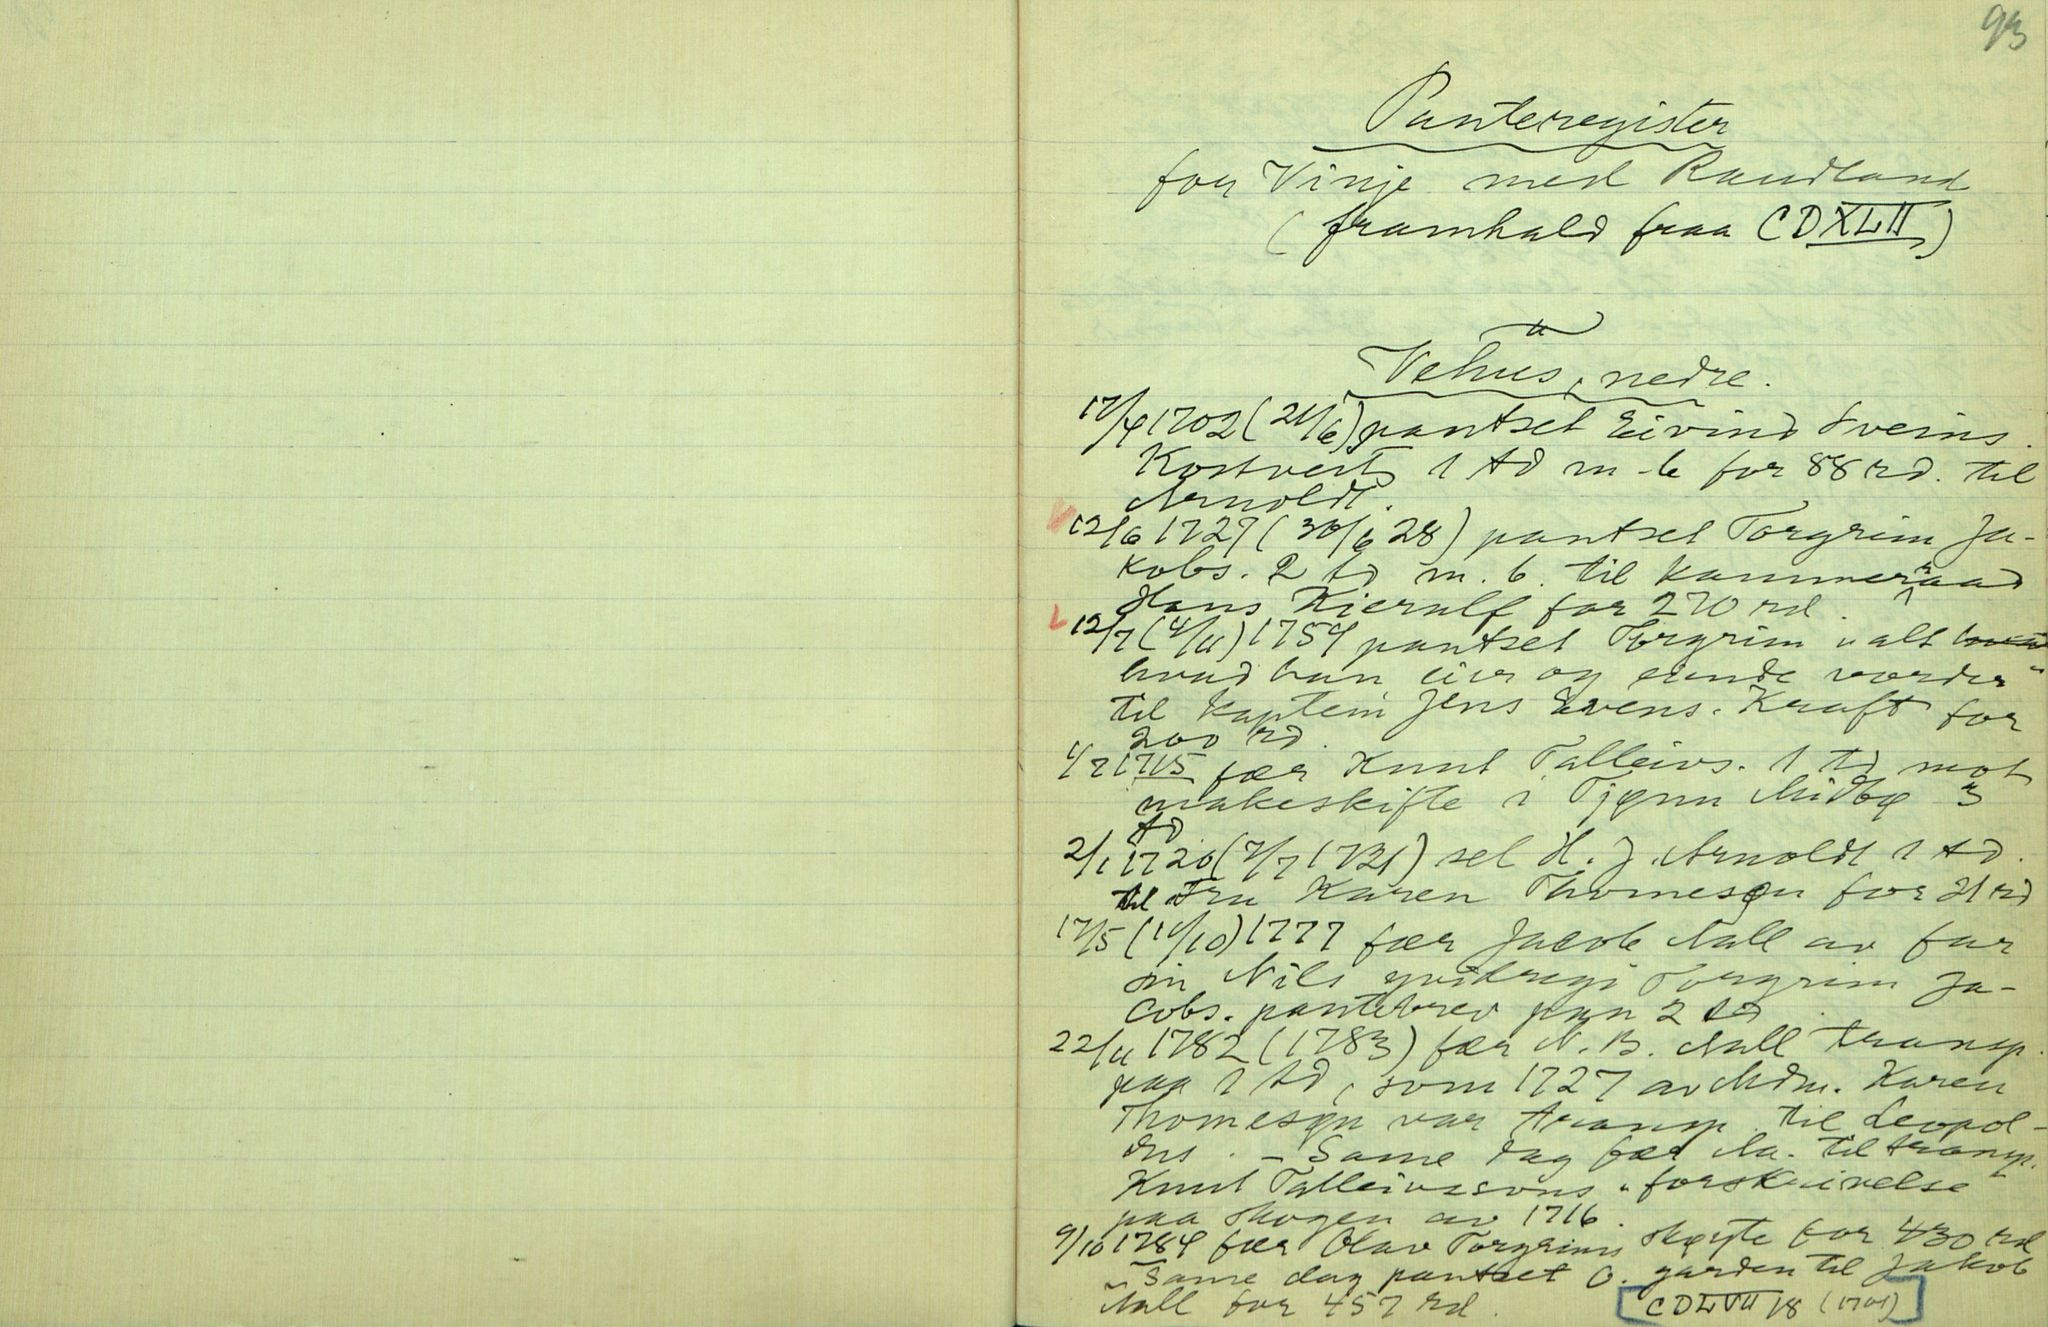 93
Panteregister
for Vinje med Raudland
(framhald fraa CDXLII)
Vehus, nedre.
17/4 1702 (21/6) pantset Eivind Sveins.
Kostveit 1 td m b for 88 rd. til
Arnoldt.
12/6 1727 (30/6 28) pantset Torgrim Ja-
kobs. 2 td m. b. til kammerraad
Hans Kierulf for 270 rd.
12/7 (4/11) 1754 pantset Torgrim "alt
hvad han eier og eiende vorder"
til kaptein Jens Evens. Kraft for
200 rd.
1/7 1715 fær Knut Talleivs. 1 td mot
makeskifte i Tjønn Midbø 3
td
2/1 1720 (7/7 1731) sel H. J. Arnoldt 1 td.
til Fru Karen Thomesøn for 71 rd
17/5 (11/10) 1777 fær Jacob Aall av far
sin Nils Torgrim Ja-
cobs. pantebrev paa 2 td.
22/11 1782 (1783) fær N. B. Aall transp.
paa 1 td, som 1727 av Mdm. Karen
Thomesøn var transp. til Leopol-
dus. - Same dag fær Aa. til transp.
Knut Talleivssons "forskrivelse
paa skogen av 1716.
9/10 1784 fær Olav Torgrims skøyte for 430 rd
- Same dag pantset O. garden til Jakob
Aall for 457 rd.
CDLVII 18 (1701)